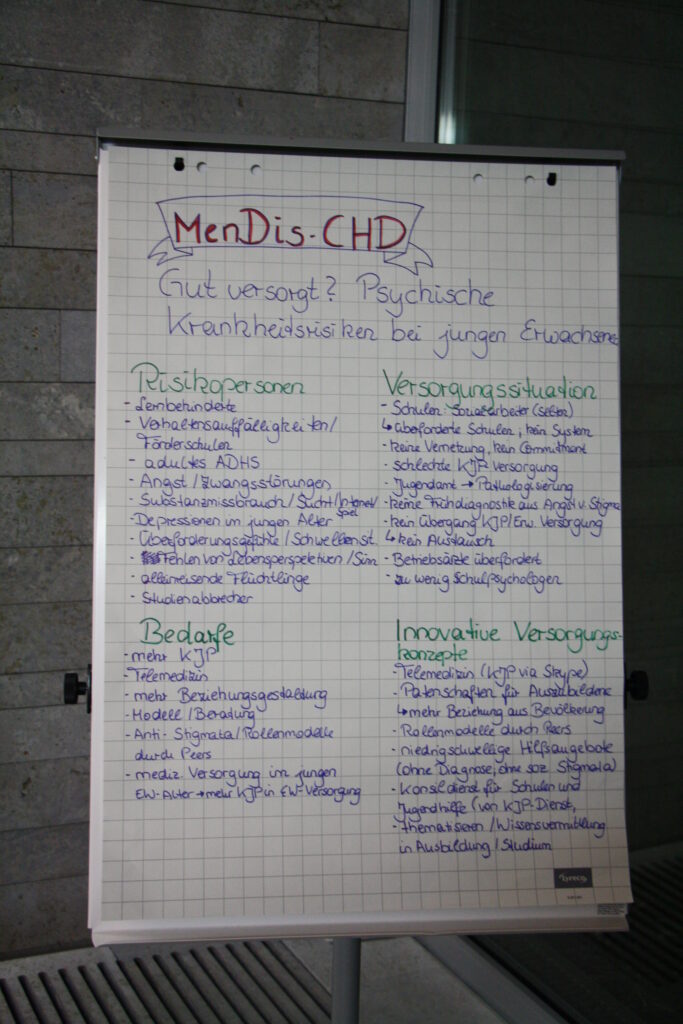 MenDis-CHD
Gut versorgt? Psychische
Krankheitsrisiken bei jungen Erwachsenen
Risikopersonen
- Lernbehinderte
- Verhaltensauffälligkeiten/
Förderschulen
- adultes ADHS
- Angst/Zwangsstörungen
- Substanzmissbrauch/Sucht/Internet/
Spiel
- Depressionen im jungen Alter
- Überforderungsgefühle/Schwellensit.
- Fehlen von Lebensperspektiven/Sinn
- alleinreisende Flüchtlinge
- Studienabbrecher
Versorgungssituation
- Schulen: Sozialarbeiter (selten)
↳ überforderte Schulen; kein System
- keine Vernetzung, kein Commitment
- schlechte KJP Versorgung
- Jugendamt → Pathologisierung
- keine Frühdiagnostik aus Angst v. Stigma
- kein Übergang KJP/Erw. Versorgung
↳ kein Austausch
- Betriebsärzte überfordert
- zu wenig Schulpsychologen
Bedarfe
- mehr KJP
- Telemedizin
- mehr Beziehungsgestaltung
- Modell/Beratung
- Anti-Stigmata/Rollenmodelle
durch Peers
- mediz. Versorgung im jungen
EW-Alter → mehr KJP in EW-Versorgung
Innovative Versorgungs-
konzepte
- Telemedizin (KJP via Skype)
- Patenschaften für Auszubildene
↳ mehr Beziehung aus Bevölkerung
- Rollenmodelle durch Peers
- niedrigschwellige Hilfsangebote
(ohne Diagnose, ohne soz. Stigmata)
- Konsildienst für Schulen und
Jugendhilfe (von KJP-Dienst,
- thematisieren/Wissensvermittlung
in Ausbildung/Studium